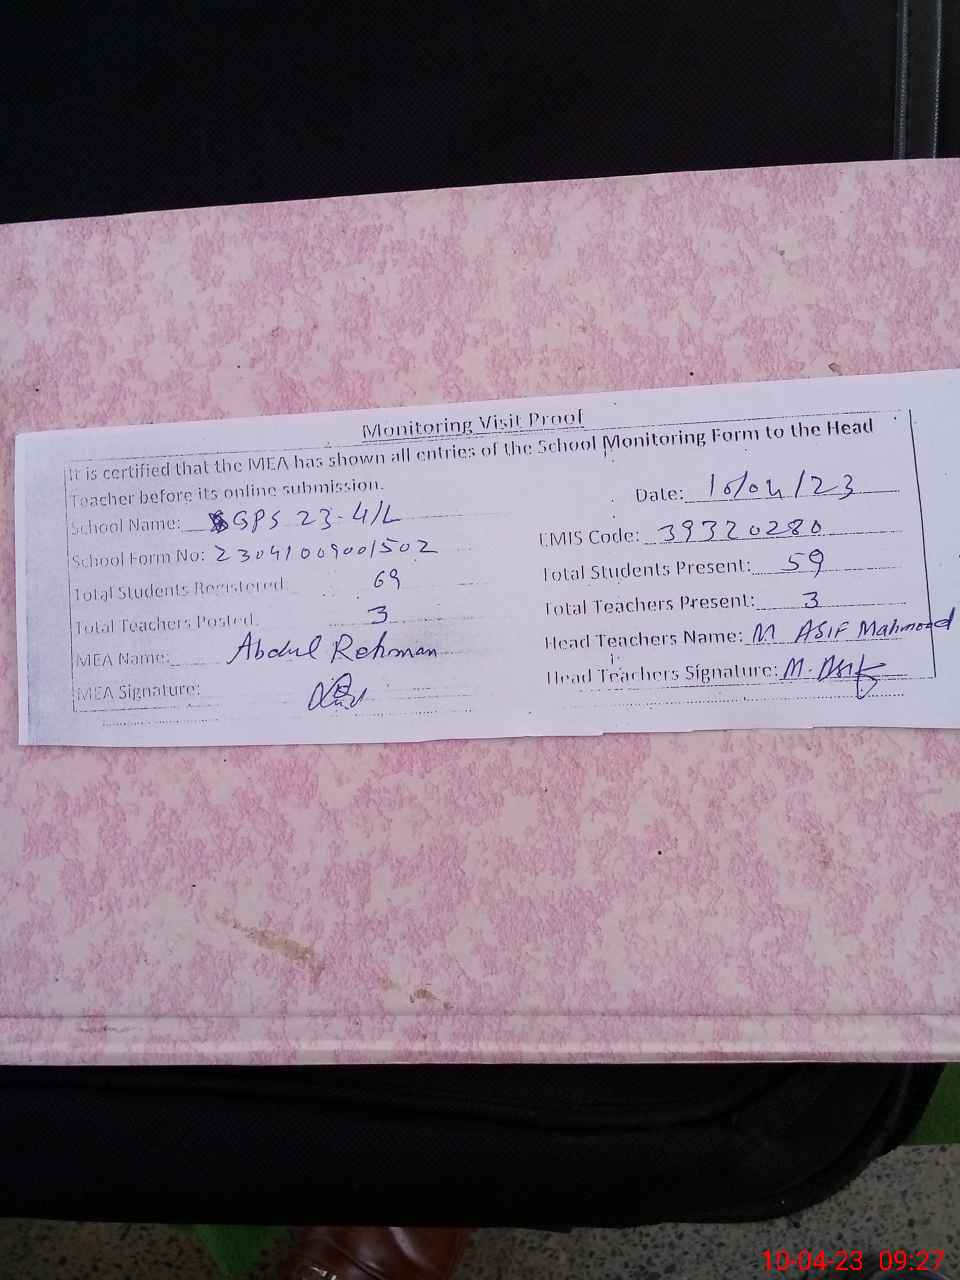 Monitoring Visit Proof
It is certified that the MEA has shown all entries of the School Monitoring Form to the Head
Teacher before its online submission.
Date: 10/04/23
School Name: GPS 23-4/L
EMIS Code: 39320280
School Form No: 23041009001502
Total Students Present: 59
Total Students Registered: 69
Total Teachers Present: 3
Total Teachers Posted: 3
Head Teachers Name: M ASIF Mahmood
MEA Name: Abdul Rehman
Head Teachers Signature: M. Asif
MEA Signature:
10-04-23 09:27